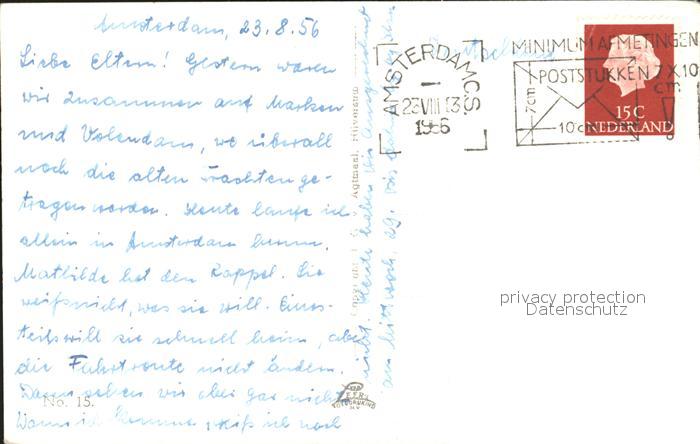 Amsterdam, 23.8.56
Liebe Eltern! Gestern waren
wir zusammen auf Marken
und Volendam, wo überall
noch die alten Trachten ge-
tragen werden. Heute laufe ich
allein in Amsterdam herum.
Mathilde hat den Rappel. Sie
weiß nicht, was sie will. Eines-
teils will sie schnell heim, aber
die Fahrtroute nicht ändern.
Dann sehen wir aber gar nichts.
Wann ich komme, weiß ich noch
nicht. Heute haben wir
No. 15.
AMSTERDAM C.S.
23 VIII 13
1956
MINIMUM AFMETINGEN
POSTSTUKKEN 7 X 10
cm
7cm
10cm
15 C
NEDERLAND
privacy protection
Datenschutz